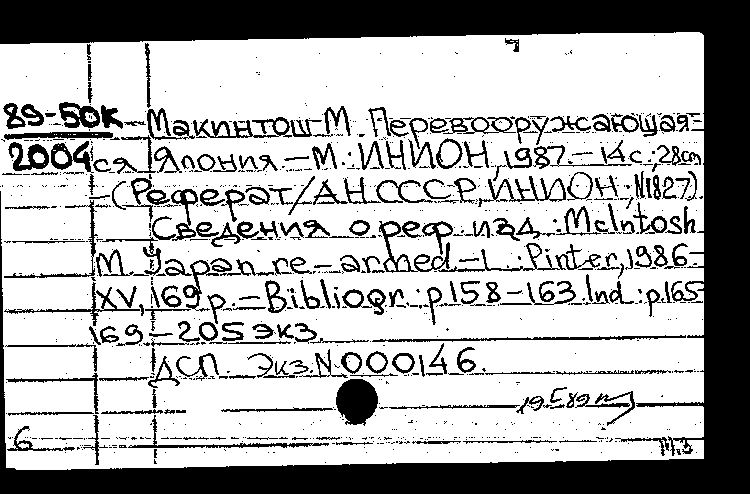 89-50К Макинтош М. Перевооружающая-
2004 ся Япония. – М.: ИНИОН, 1987. – 14 с.; 28 cm
– (Реферат/АН СССР, ИНИОН; N1827).
Сведения о реф. изд.: McIntosh
M. Japan re-armed. – L.: Pinter, 1986 –
XV, 169 p. – Bibliogr.: p 158–163. Ind.: p. 165
169 – 205 экз.
ДСП. Экз. N 000146.
6